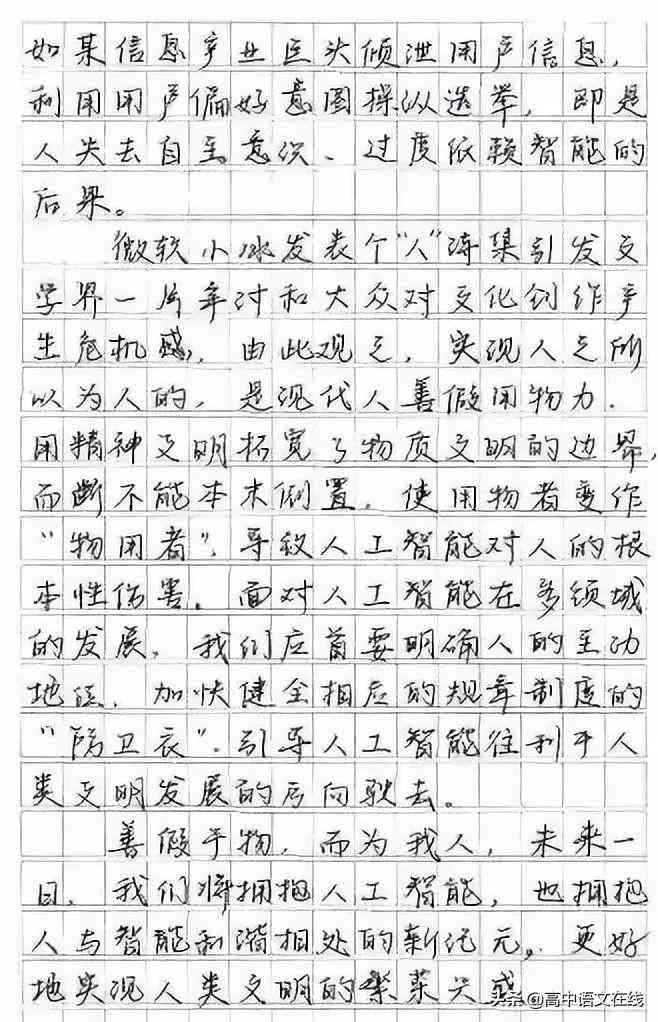 如某信息产业巨头倾泄用户信息，
利用用户偏好意图操纵选举，即是
人失去自主意识、过度依赖智能的
后果。
微软小冰发表个“人”诗集引发文
学界一片争讨和大众对文化创作产
生危机感，由此观之，实现人之所
以为人的，是现代人善假用物力.
用精神文明拓宽了物质文明的边界，
而断不能本末倒置，使用物者变作
“物用者”，导致人工智能对人的根
本性伤害。面对人工智能在多领域
的发展，我们应首要明确人的主动
地位，加快健全相应的规章制度的
“防卫衣”，引导人工智能往利于人
类文明发展的方向驶去。
善假于物，而为我人，未来一
日，我们将拥抱人工智能，也拥抱
人与智能和谐相处的新纪元，更好
地实现人类文明的繁荣兴盛
头条@高中语文在线